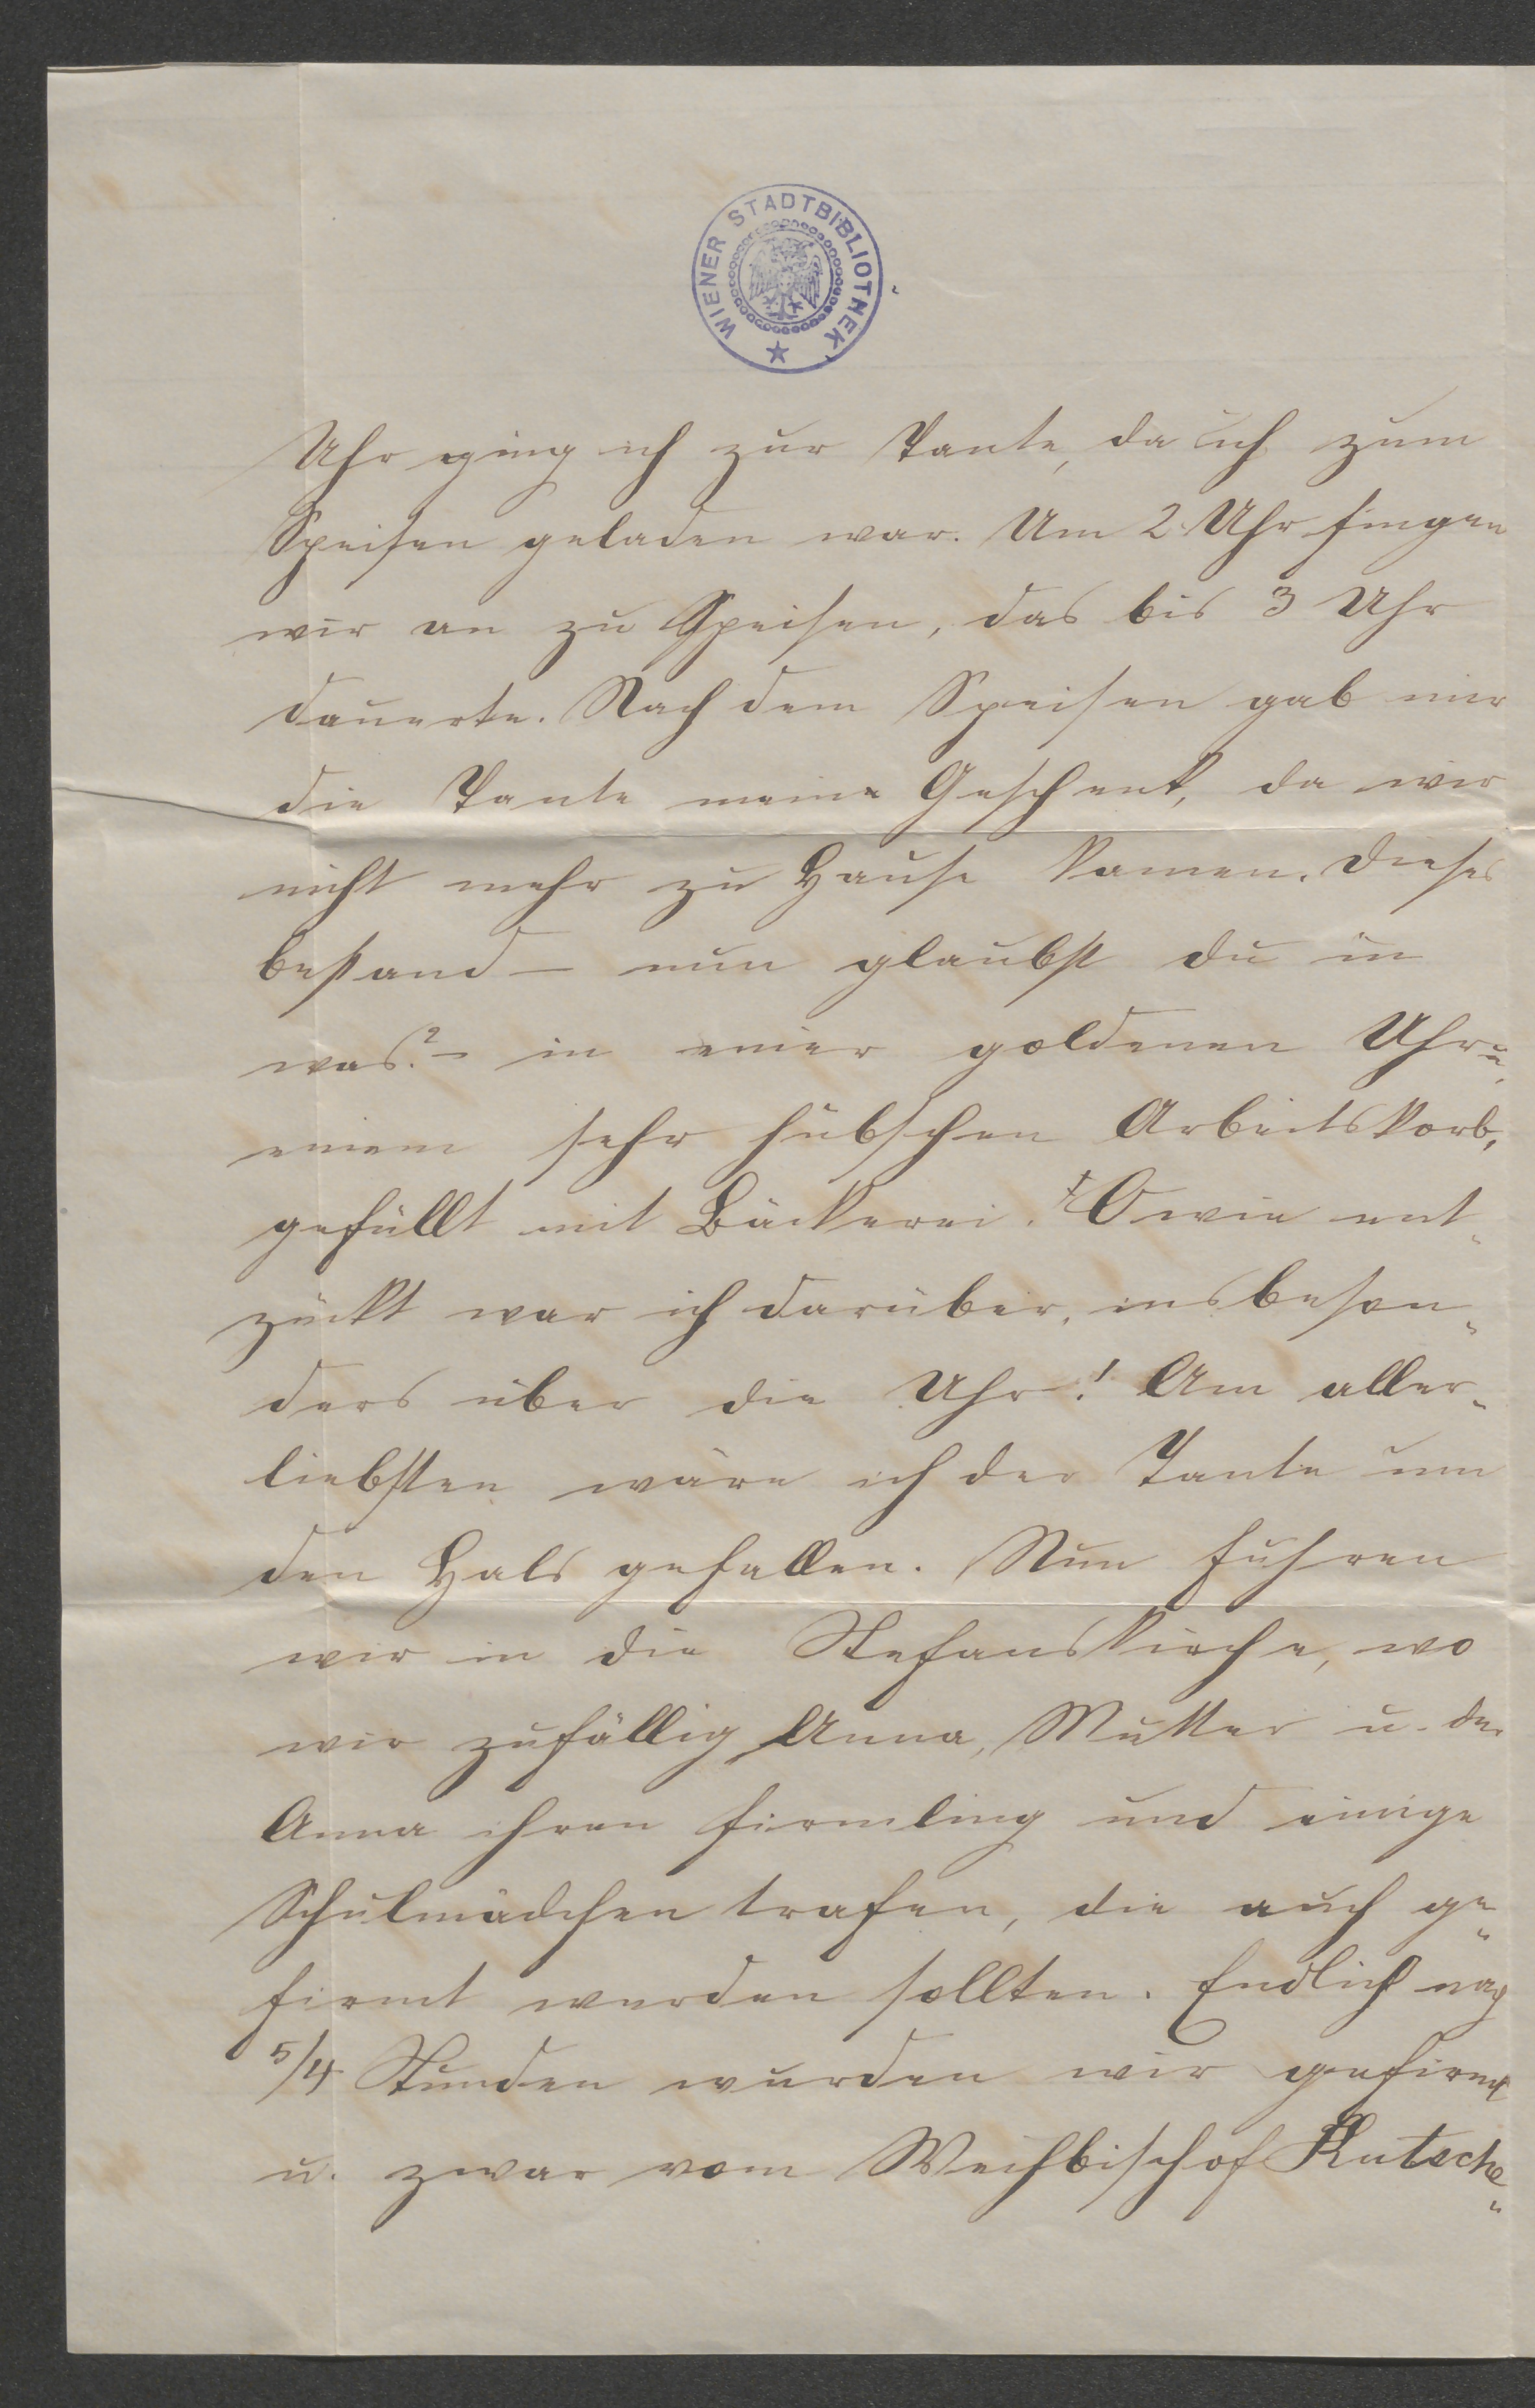 WIENER STADTBIBLIOTHEK
Uhr ging ich zur Tante, da ich zum
Speisen geladen war. Um 2 Uhr fingen
wir an zu Speisen, das bis 3 Uhr
dauerte. Nach dem Speisen gab mir
die Tante meine Geschenk, da wir
nicht mehr zu Hause kamen. Dieses
bestand – nun glaubst du in
was? – in einer goldenen Uhr u.
einem sehr hübschen Arbeitskorb,
gefüllt mit Bäckerei. O wie ent-
zückt war ich darüber, insbeson-
ders über die Uhr! Am aller-
liebsten wäre ich der Tante um
den Hals gefallen. Nun fuhren
wir in die Stefanskirche, wo
wir zufällig Anna, Mutter u. der
Anna ihren Firmling und einige
Schulmädchen trafen, die auch ge-
firmt werden sollten. Endlich nach
5/4 Stunden wurden wir gefirmt
u. zwar vom Weihbischof Kutsche-